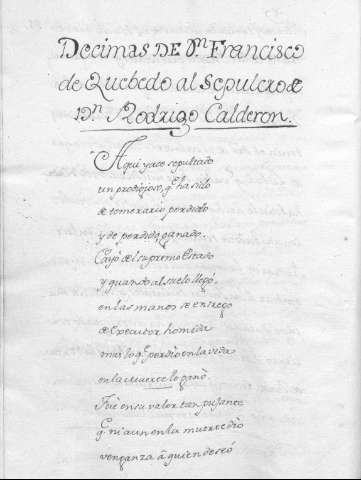 Decimas DE Dn. Francisco
de Quebedo al Sepulcro de
Dn. Rodrigo Calderon.
Aqui yace sepultado
un prodigioso, q.e ha sido
de temerario, perdido
y de perdido, ganado.
Cayó del supremo Estado
y quando al suelo llegó,
en las manos se entregó
de executor homicida
mas lo q.e perdio en la vida
en la muerte lo ganó.
Fue en su valor tan pujante
q.e ni aun en la muerte dio
venganza á quien deseó